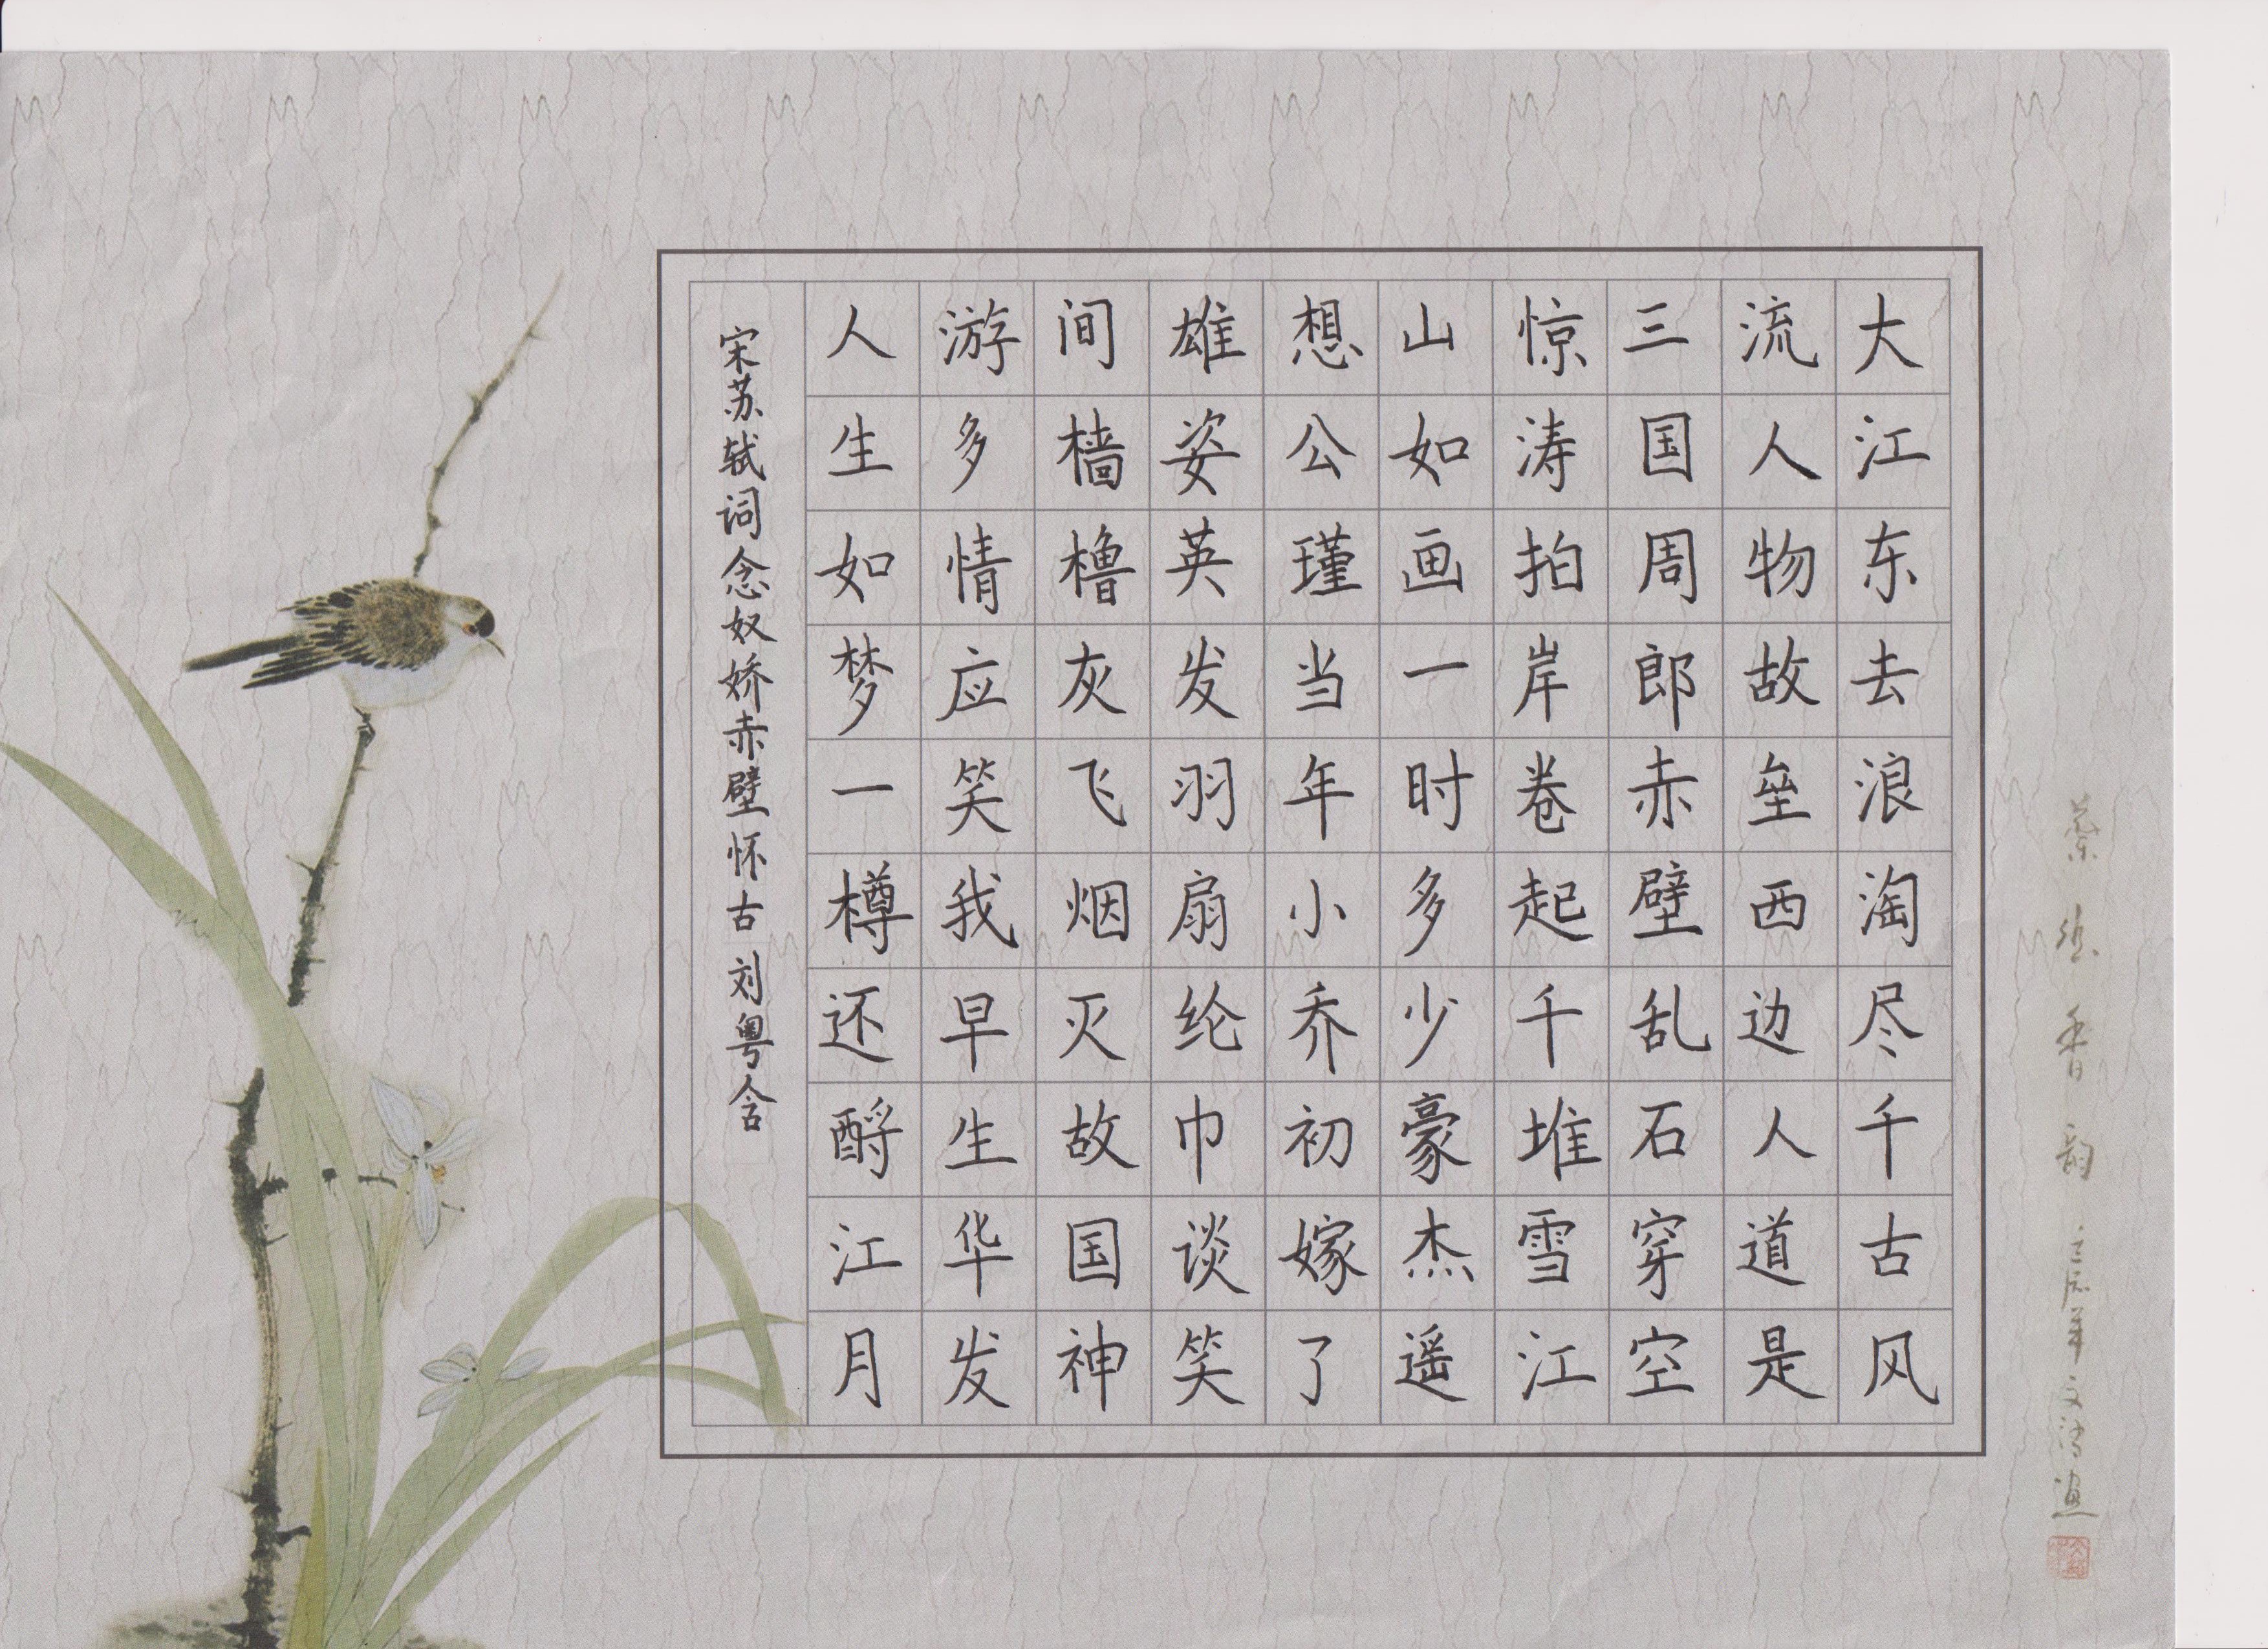 大江东去浪淘尽千古风
流人物故垒西边人道是
三国周郎赤壁乱石穿空
惊涛拍岸卷起千堆雪江
山如画一时多少豪杰遥
想公瑾当年小乔初嫁了
雄姿英发羽扇纶巾谈笑
间樯橹灰飞烟灭故国神
游多情应笑我早生华发
人生如梦一樽还酹江月
宋苏轼词念奴娇赤壁怀古 刘粤含